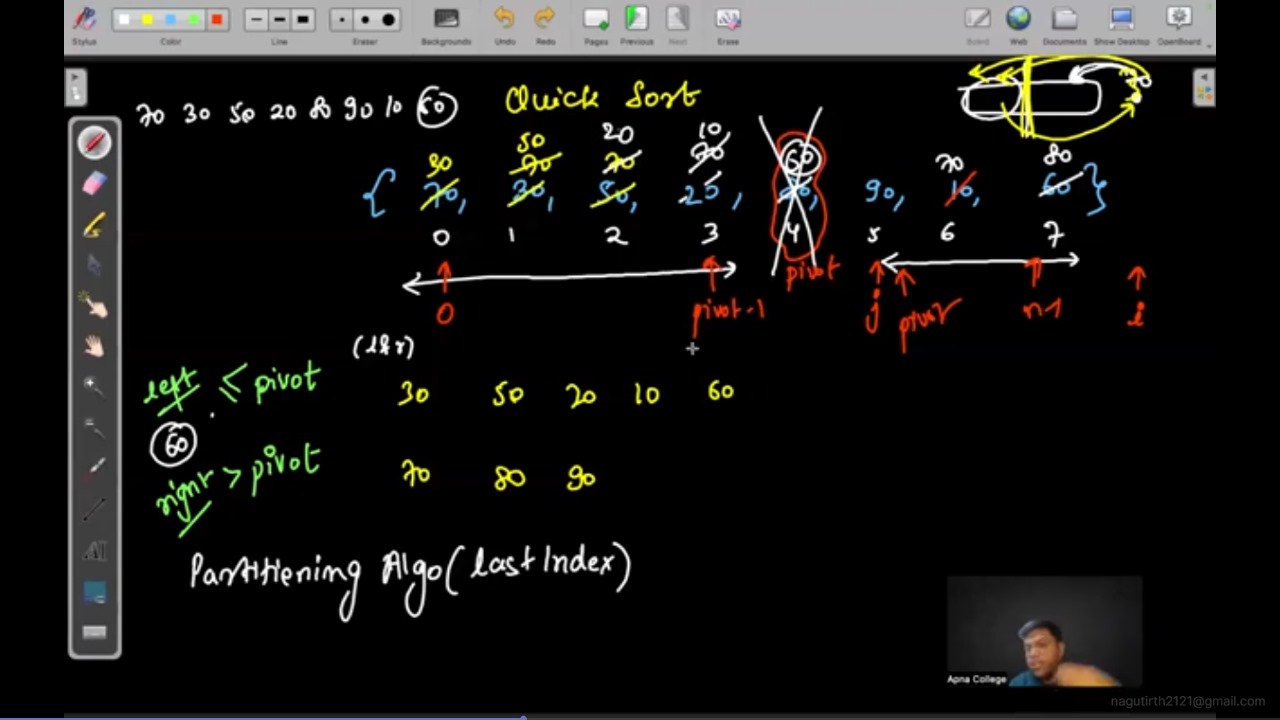 Stylus Color Line Eraser Backgrounds Undo Redo Pages Previous Next Erase Board Web Documents Show Desktop OpenBoard
70 30 50 20 80 90 10 60 Quick Sort
30 50 20 10 60 70 80
70 70 70
{ 70, 30, 50, 20, 80, 90, 10, 60 }
0 1 2 3 4 5 6 7
0 pivot-1 pivot j pivot n-1 i
(l&r)
left ≤ pivot 30 50 20 10 60
60
right > pivot 70 80 90
Partitiening Algo(lastIndex)
Apna College
nagutirth2121@gmail.com